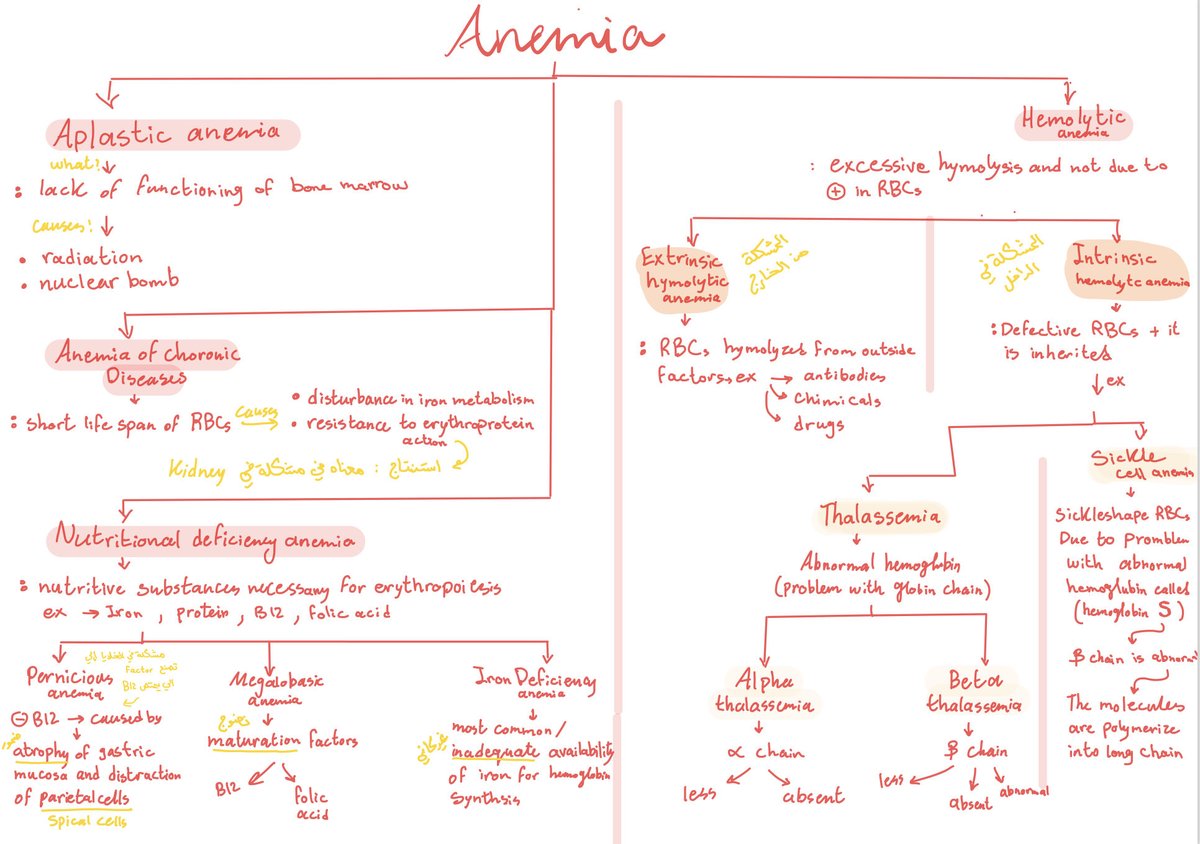 Anemia
Aplastic anemia
what?
: lack of functioning of bone marrow
causes:
• radiation
• nuclear bomb
Anemia of choronic
Diseases
: short life span of RBCs
causes
• disturbance in iron metabolism
• resistance to erythroprotein
action
استنتاج : معناه في مشكلة في Kidney
Nutritional deficiency anemia
: nutritive substances necessary for erythropoiesis
ex → Iron , protein , B12 , folic acid
Pernicious
anemia
مشكلة في
تصنع Factor
B12
⊖ B12 → caused by
ضمور
atrophy of gastric
mucosa and distraction
of parietal cells
spical cells
Megalobasic
anemia
نضوج
maturation factors
B12
folic
acid
Iron Deficiency
anemia
most common/
غير كافي
inadequate availability
of iron for hemoglobin
synthsis
Hemolytic
anemia
: excessive hymolysis and not due to
⊕ in RBCs
Extrinsic
hymolytic
anemia
المشكلة
من الخارج
: RBCs hymolyzed from outside
factors, ex → antibodies
chimicals
drugs
Intrinsic
hemolytc anemia
المشكلة في
الداخل
: Defective RBCs + it
is inherited
ex
Thalassemia
Abnormal hemoglobin
(problem with globin chain)
Alpha
thalassemia
∝ chain
less
absent
Beta
thalassemia
β chain
less
absent
abnormal
Sickle
cell anemia
Sickleshape RBCs
Due to promblem
with abnormal
hemoglubin called
(hemoglobin S)
β chain is abnormal
The molecules
are polymerize
into long chain